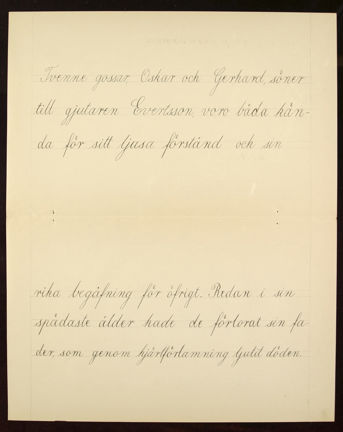 Tvenne gossar, Oskar och Gerhard, söner
till gjutaren Evertsson, voro båda kän-
da för sitt ljusa förstånd och sin
rika begåfning för öfrigt. Redan i sin
spädaste ålder hade de förlorat sin fa-
der, som genom hjärtförlamning ljutit döden.